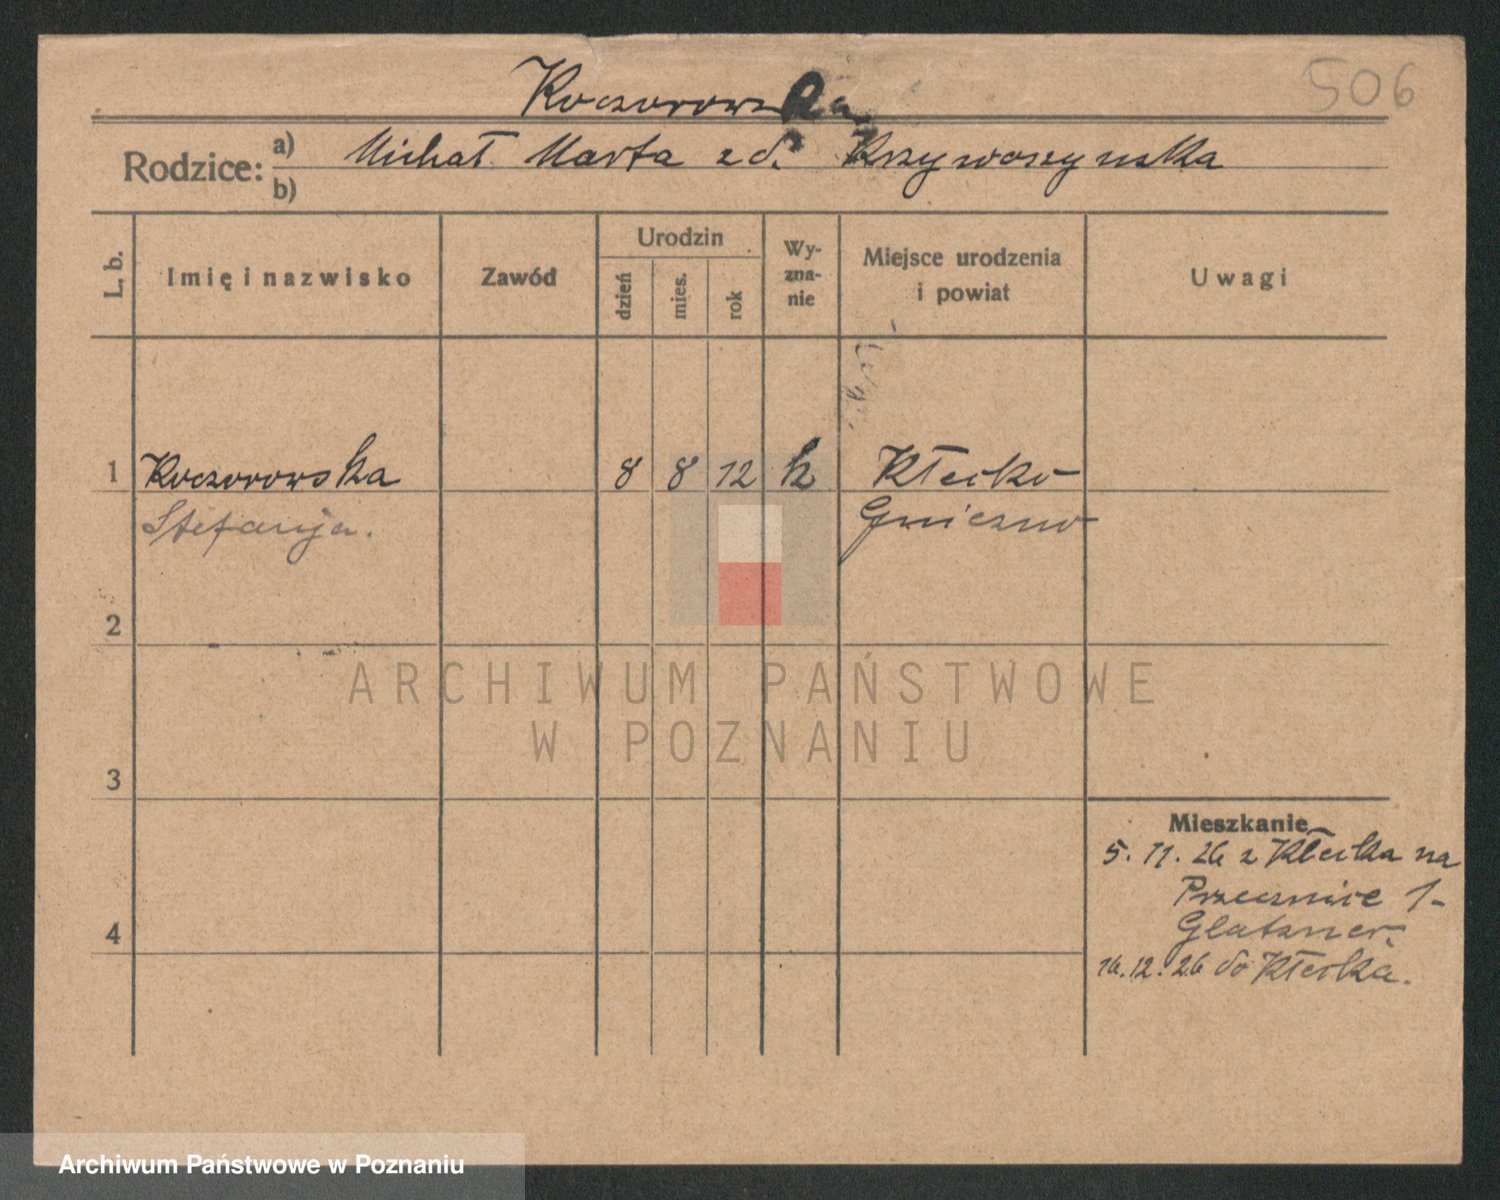 506
Koczorowska
Rodzice: a) Michał Marta z d. Krzywoszyńska
b)
L. b.
Imię i nazwisko
Zawód
Urodzin
dzień
mies.
rok
Wy-
zna-
nie
Miejsce urodzenia
i powiat
Uwagi
1 Koczorowska 8 8 12 k Kłecko
Stefanja. Gniezno
2
3
4
Mieszkanie
5. 11. 26 z Kłecka na
Przecznice 1-
Glatzner.
16. 12. 26 do Kłecka.
ARCHIWUM PAŃSTWOWE
W POZNANIU
Archiwum Państwowe w Poznaniu